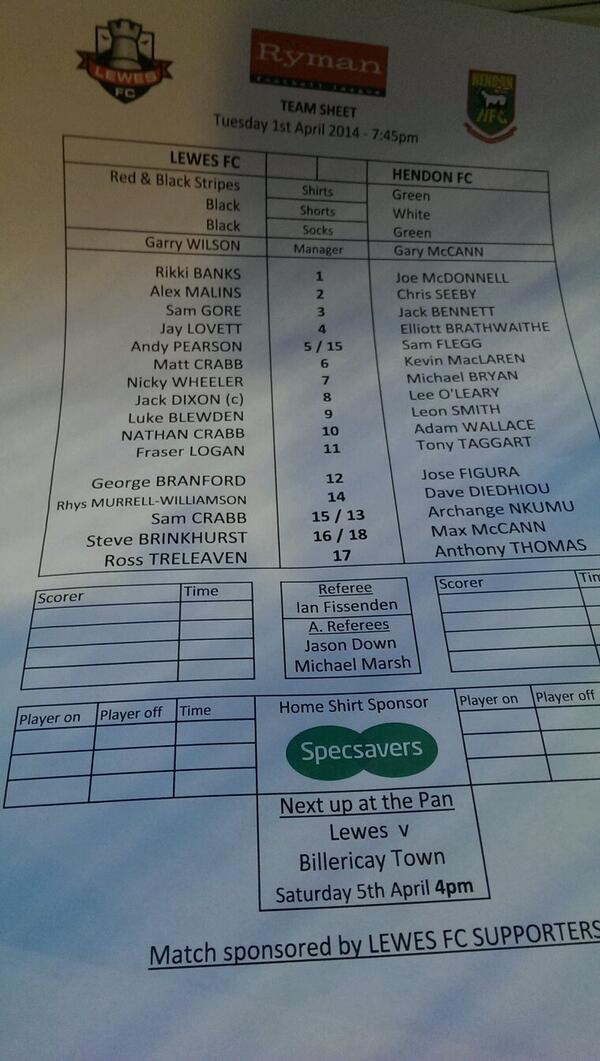 LEWES
FC
Ryman
Football League
HENDON
HFC
TEAM SHEET
Tuesday 1st April 2014 - 7:45pm
LEWES FC HENDON FC
Red & Black Stripes Shirts Green
Black Shorts White
Black Socks Green
Garry WILSON Manager Gary McCANN
Rikki BANKS 1 Joe McDONNELL
Alex MALINS 2 Chris SEEBY
Sam GORE 3 Jack BENNETT
Jay LOVETT 4 Elliott BRATHWAITHE
Andy PEARSON 5 / 15 Sam FLEGG
Matt CRABB 6 Kevin MacLAREN
Nicky WHEELER 7 Michael BRYAN
Jack DIXON (c) 8 Lee O'LEARY
Luke BLEWDEN 9 Leon SMITH
NATHAN CRABB 10 Adam WALLACE
Fraser LOGAN 11 Tony TAGGART
George BRANFORD 12 Jose FIGURA
Rhys MURRELL-WILLIAMSON 14 Dave DIEDHIOU
Sam CRABB 15 / 13 Archange NKUMU
Steve BRINKHURST 16 / 18 Max McCANN
Ross TRELEAVEN 17 Anthony THOMAS
Scorer Time Referee Scorer Tim
Ian Fissenden
A. Referees
Jason Down
Michael Marsh
Player on Player off Time Home Shirt Sponsor Player on Player off
Specsavers
Next up at the Pan
Lewes v
Billericay Town
Saturday 5th April 4pm
Match sponsored by LEWES FC SUPPORTERS